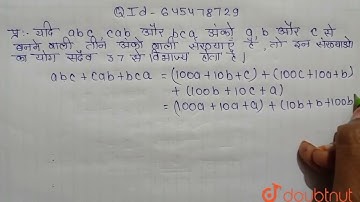 Q Id - 645478729
प्र:- यदि abc, cab और bca अंको a, b और c से
बनने वाली तीन अंको वाली संख्याएँ है, तो इन संख्याओ
का योग सदैव 37 से विभाज्य होता है।
abc + cab + bca = (100a + 10b + c) + (100c + 10a + b)
+ (100b + 10c + a)
= (100a + 10a + a) + (10b + b + 100b
doubtnut